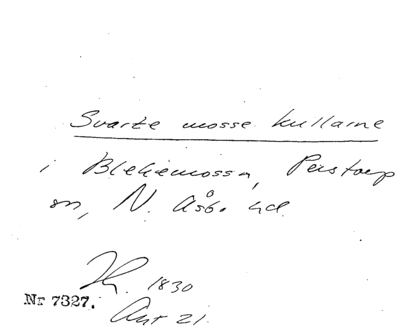 Svarte mosse kullarne
i Blekemossen, Perstorp
sn, N. Åsbo hd.
1830
Nr 7327.
Ant 21.